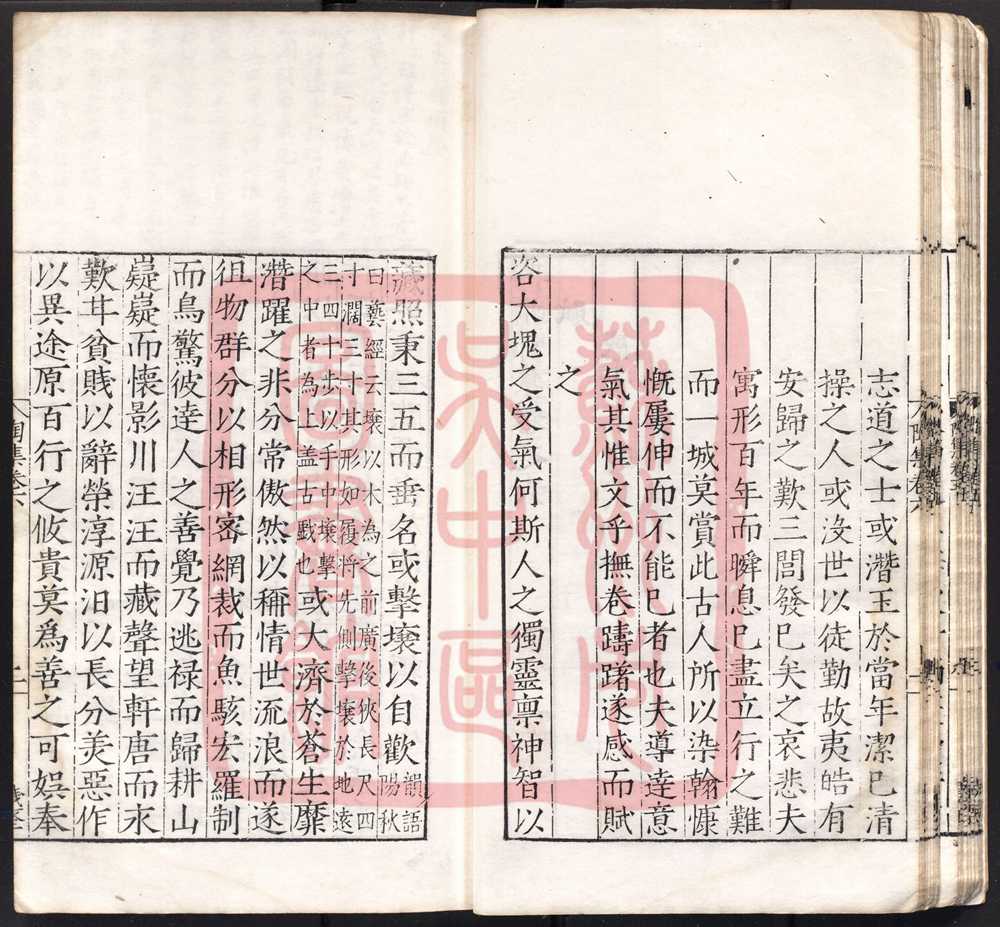 志道之士或潛玉於當年潔已清
操之人或沒世以徒勤故夷皓有
安歸之歎三閭發已矣之哀悲夫
寓形百年而瞬息已盡立行之難
而一城莫賞此古人所以染翰慷
慨屢伸而不能已者也夫導達意
氣其惟文乎撫卷躊躇遂感而賦
之
咨大塊之受氣何斯人之獨靈禀神智以
藏照秉三五而垂名或擊壤以自歡韻語
陽秋
曰藝經云壤以木為之前廣後狹長尺四
寸闊三寸其形如履將先側擊壤於地遠
三四十步以手中壤擊
之中者為上盖古戲也或大濟於蒼生靡
潛躍之非分常傲然以稱情世流浪而遂
徂物群分以相形密網裁而魚駭宏羅制
而鳥驚彼達人之善覺乃逃禄而歸耕山
嶷嶷而懷影川汪汪而藏聲望軒唐而永
歎甘貧賤以辭榮淳源汩以長分美惡作
以異途原百行之攸貴莫爲善之可娛奉
陶集卷六
蘇州市
吳中區
圖書館